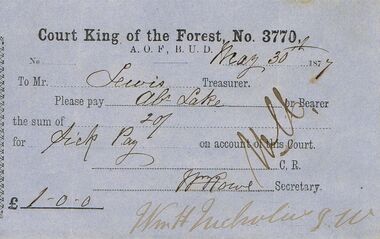 Court King of the Forest, No. 3770,
A. O. F., B. U. D.
No May 30th 1877
To Mr. Lewis Treasurer.
Please pay Abr Lake or Bearer
the sum of 20/
for Sick Pay on account of this Court.
C. R.
Wm Rowe Secretary.
£ 1-0-0
Wm H Nicholls S.W